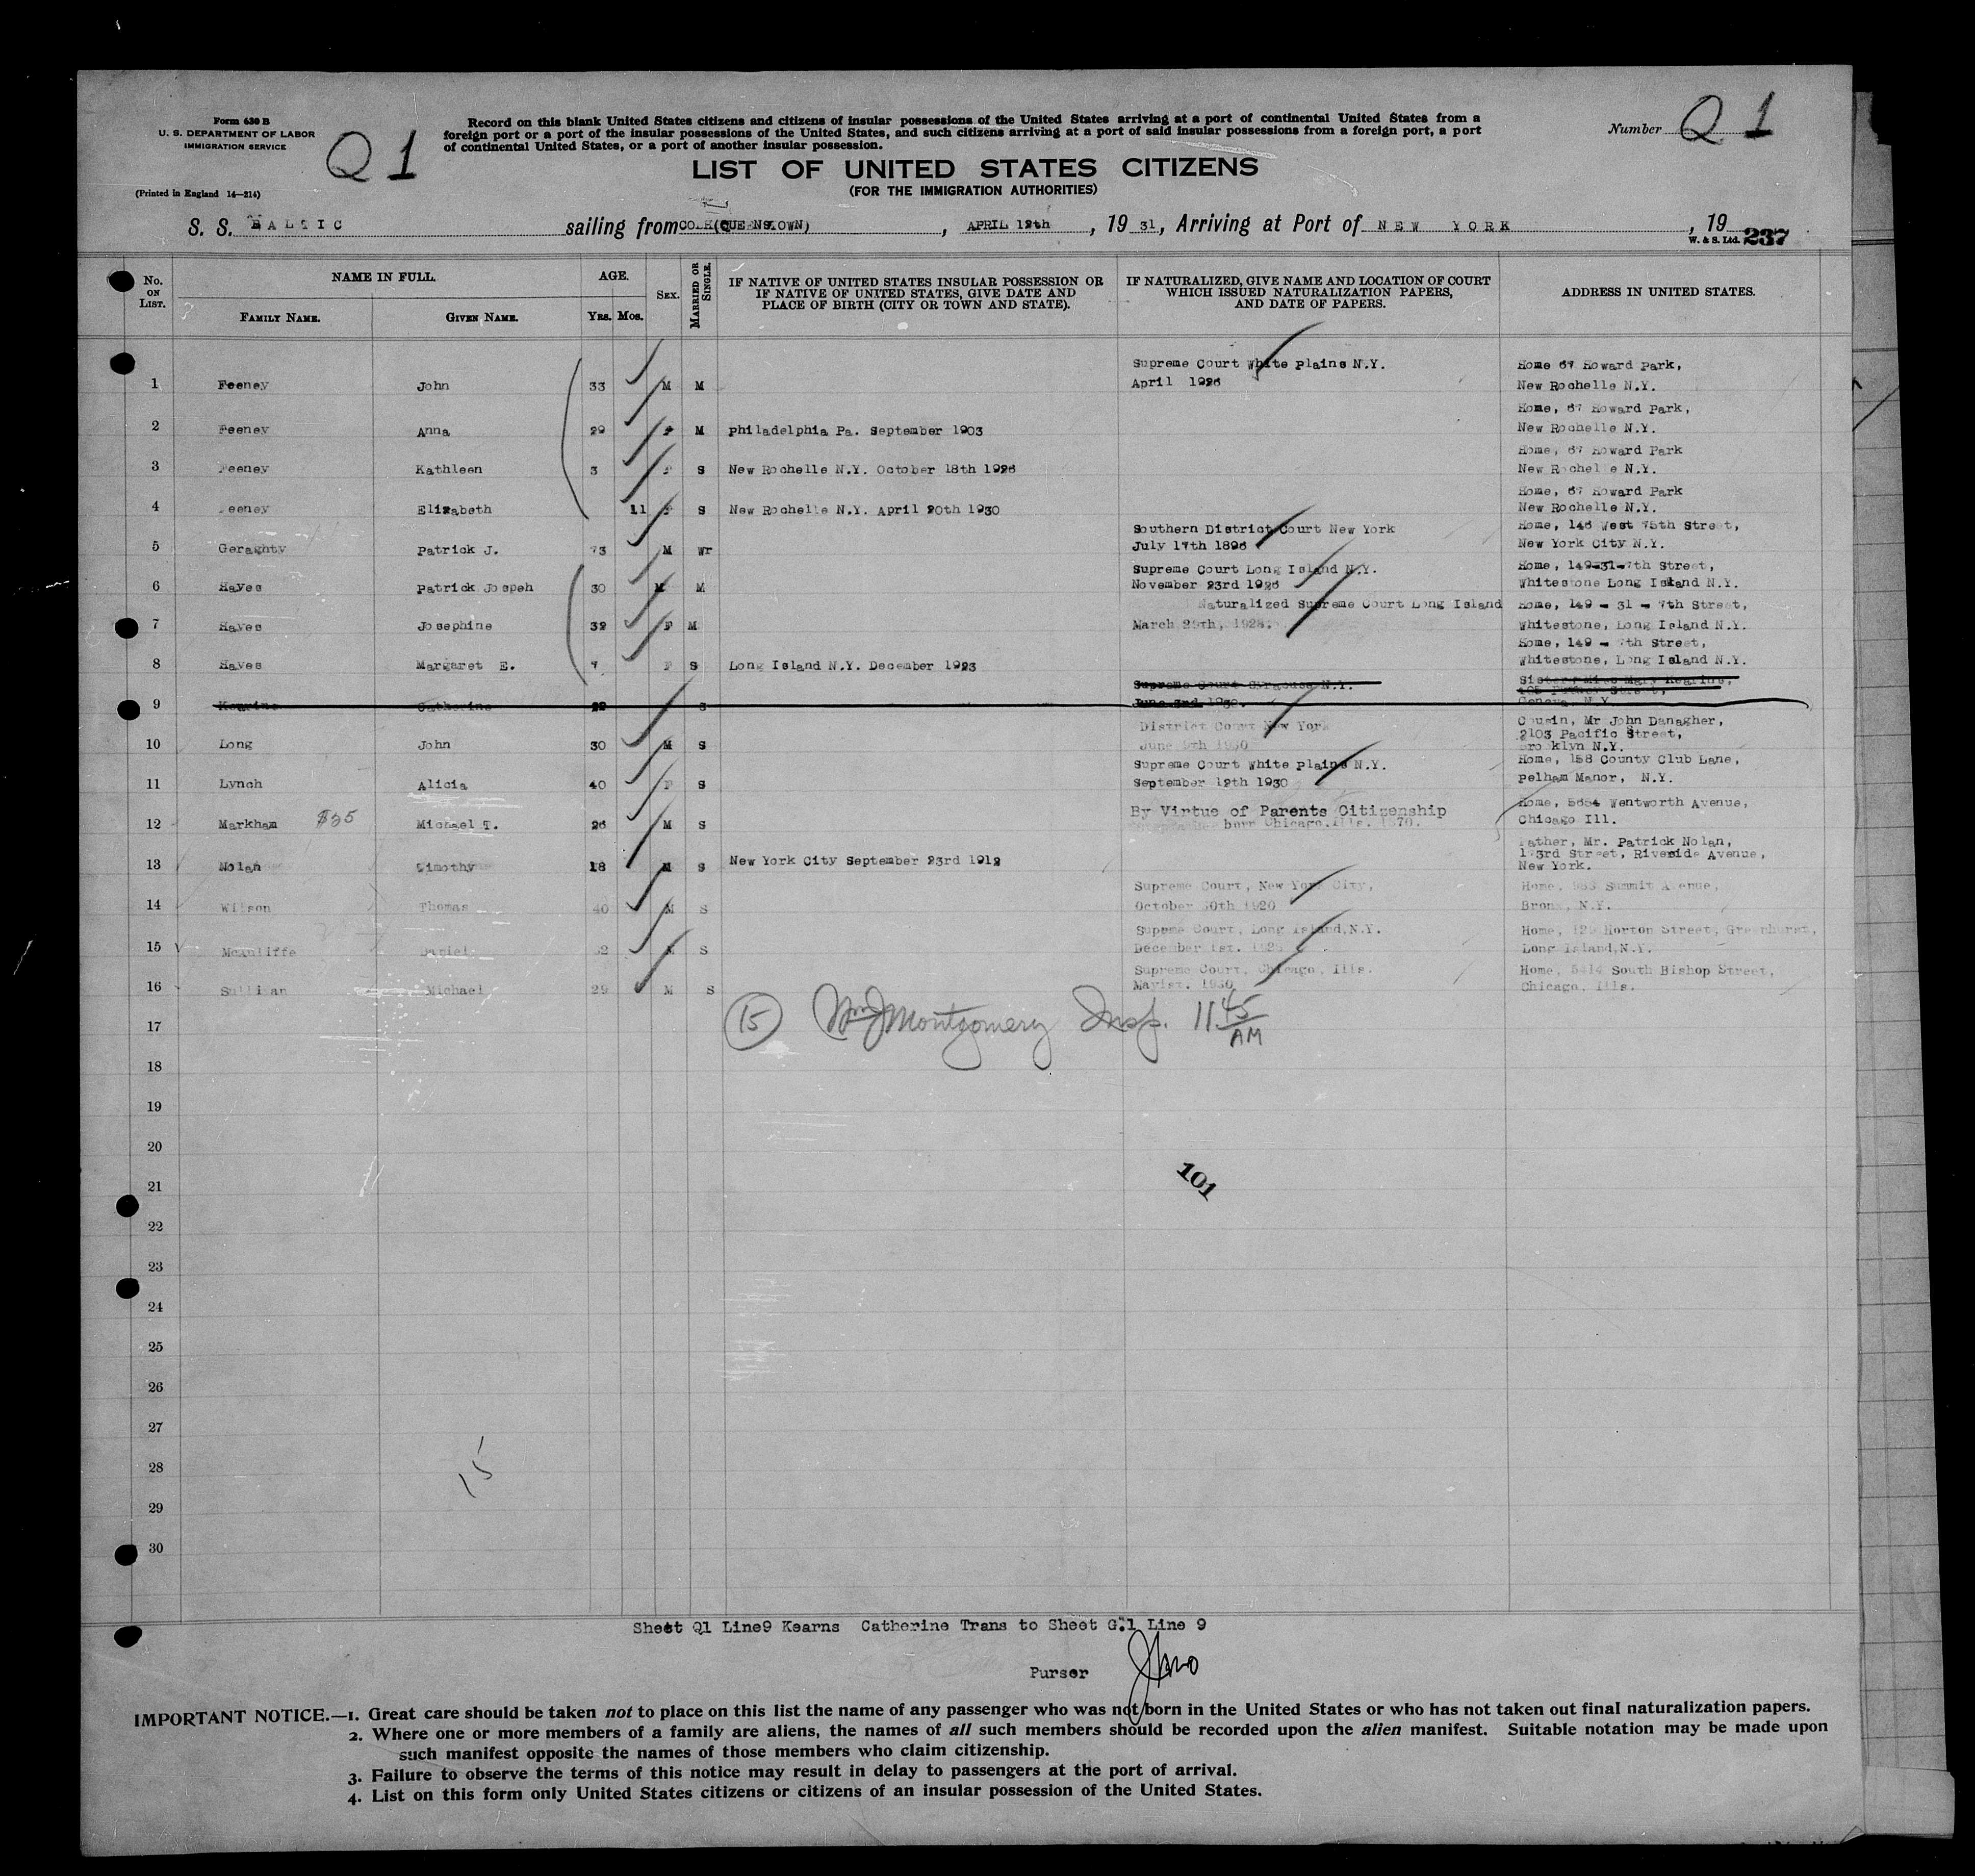 Form 630 B
U. S. DEPARTMENT OF LABOR
IMMIGRATION SERVICE
(Printed in England 14—214)
Q 1
Record on this blank United States citizens and citizens of insular possessions of the United States arriving at a port of continental United States from a
foreign port or a port of the insular possessions of the United States, and such citizens arriving at a port of said insular possessions from a foreign port, a port
of continental United States, or a port of another insular possession.
Number Q 1
LIST OF UNITED STATES CITIZENS
(FOR THE IMMIGRATION AUTHORITIES)
S. S. BALTIC sailing from COBH(QUEENSTOWN), APRIL 12th, 19 31, Arriving at Port of NEW YORK, 19
W. & S. Ltd. 237
No. ON LIST. NAME IN FULL. FAMILY NAME. GIVEN NAME. AGE. YRS. MOS. SEX. MARRIED OR SINGLE. IF NATIVE OF UNITED STATES INSULAR POSSESSION OR IF NATIVE OF UNITED STATES, GIVE DATE AND PLACE OF BIRTH (CITY OR TOWN AND STATE). IF NATURALIZED, GIVE NAME AND LOCATION OF COURT WHICH ISSUED NATURALIZATION PAPERS, AND DATE OF PAPERS. ADDRESS IN UNITED STATES.
Supreme Court White Plains N.Y. Home 67 Howard Park,
1 Feeney John 33 M M April 1926 New Rochelle N.Y.
Home, 67 Howard Park,
2 Feeney Anna 29 F M Philadelphia Pa. September 1903 New Rochelle N.Y.
Home, 67 Howard Park
3 Feeney Kathleen 3 F S New Rochelle N.Y. October 18th 1928 New Rochelle N.Y.
Home, 67 Howard Park
4 Feeney Elizabeth 11 F S New Rochelle N.Y. April 20th 1930 New Rochelle N.Y.
Southern District Court New York Home, 146 West 75th Street,
5 Geraghty Patrick J. 73 M Wr July 17th 1896 New York City N.Y.
Supreme Court Long Island N.Y. Home, 149-31-7th Street,
6 Hayes Patrick Jospeh 30 M M November 23rd 1926 Whitestone Long Island N.Y.
Naturalized Supreme Court Long Island Home, 149 - 31 - 7th Street,
7 Hayes Josephine 32 F M March 29th, 1928. Whitestone, Long Island N.Y.
Home, 149 - 7th Street,
8 Hayes Margaret E. 7 F S Long Island N.Y. December 1923 Whitestone, Long Island N.Y.
Supreme Court Syracuse N.Y. Sister, Miss Mary
Street,
9 Catherine S June 3rd 1930. Geneva N.Y.
District Court New York Cousin, Mr John Danagher,
2103 Pacific Street,
10 Long John 30 M S June 1930 Brooklyn N.Y.
Supreme Court White Plains N.Y. Home, 158 County Club Lane,
11 Lynch Alicia 40 F S September 12th 1930 Pelham Manor, N.Y.
By Virtue of Parents Citizenship Home, 5654 Wentworth Avenue,
12 Markham $35 Michael T. 26 M S born Chicago, Ills. 1870. Chicago Ill.
Father, Mr. Patrick Nolan,
173rd Street, Riverside Avenue,
13 Nolan Timothy 18 M S New York City September 23rd 1912 New York.
Supreme Court, New York City, Home, Summit Avenue,
14 Wilson Thomas 40 M S October 30th 1920 Bronx, N.Y.
Supreme Court, Long Island, N.Y. Home, Horton Street,
15 McAuliffe Daniel 32 M S December 1st. Long Island, N.Y.
Supreme Court, Chicago, Ills. Home, 5414 South Bishop Street,
16 Sullivan Michael 29 M S May 1st. 1930 Chicago, Ills.
17
15 Wm J Montgomery Insp. 11 45 AM
18
19
20
21
101
22
23
24
25
26
27
28
15
29
30
Sheet Q1 Line9 Kearns Catherine Trans to Sheet G.1 Line 9
Purser
IMPORTANT NOTICE.—1. Great care should be taken not to place on this list the name of any passenger who was not born in the United States or who has not taken out final naturalization papers.
2. Where one or more members of a family are aliens, the names of all such members should be recorded upon the alien manifest. Suitable notation may be made upon
such manifest opposite the names of those members who claim citizenship.
3. Failure to observe the terms of this notice may result in delay to passengers at the port of arrival.
4. List on this form only United States citizens or citizens of an insular possession of the United States.